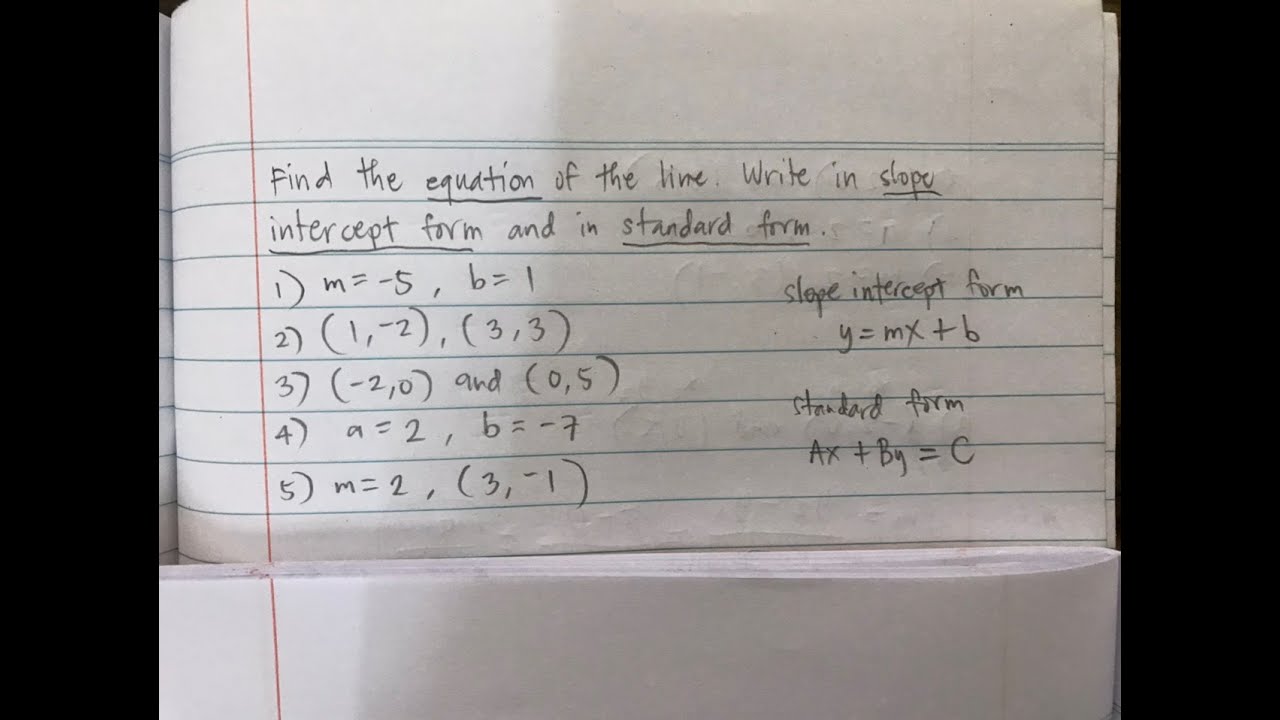 Find the equation of the line. Write in slope
intercept form and in standard form.
1) m = -5 , b = 1
2) (1, -2) , (3, 3)
3) (-2, 0) and (0, 5)
4) a = 2 , b = -7
5) m = 2 , (3, -1)
slope intercept form
y = mx + b
standard form
Ax + By = C